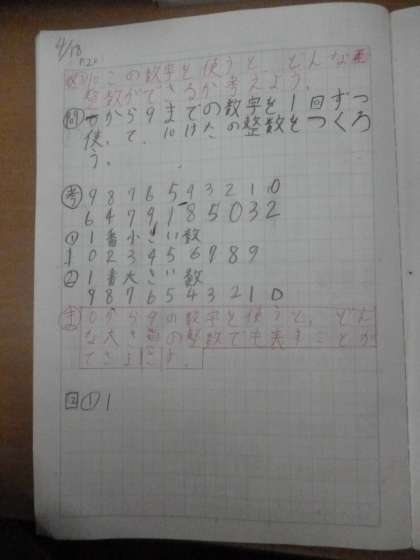 4/18
P.21
め 10この数字を使うと、どんな
整数ができるか考えよう。
問 0から9までの数字を1回ずつ
使って、10けたの整数をつくろ
う。
考 9 8 7 6 5 4 3 2 1 0
6 4 7 9 1 8 5 0 3 2
① 1番小さい数
1 0 2 3 4 5 6 7 8 9
② 1番大きい数
9 8 7 6 5 4 3 2 1 0
ま 0から9の数字を使うと、どん
な大きさの整数でも表すことが
できるよ。
2 ① 1